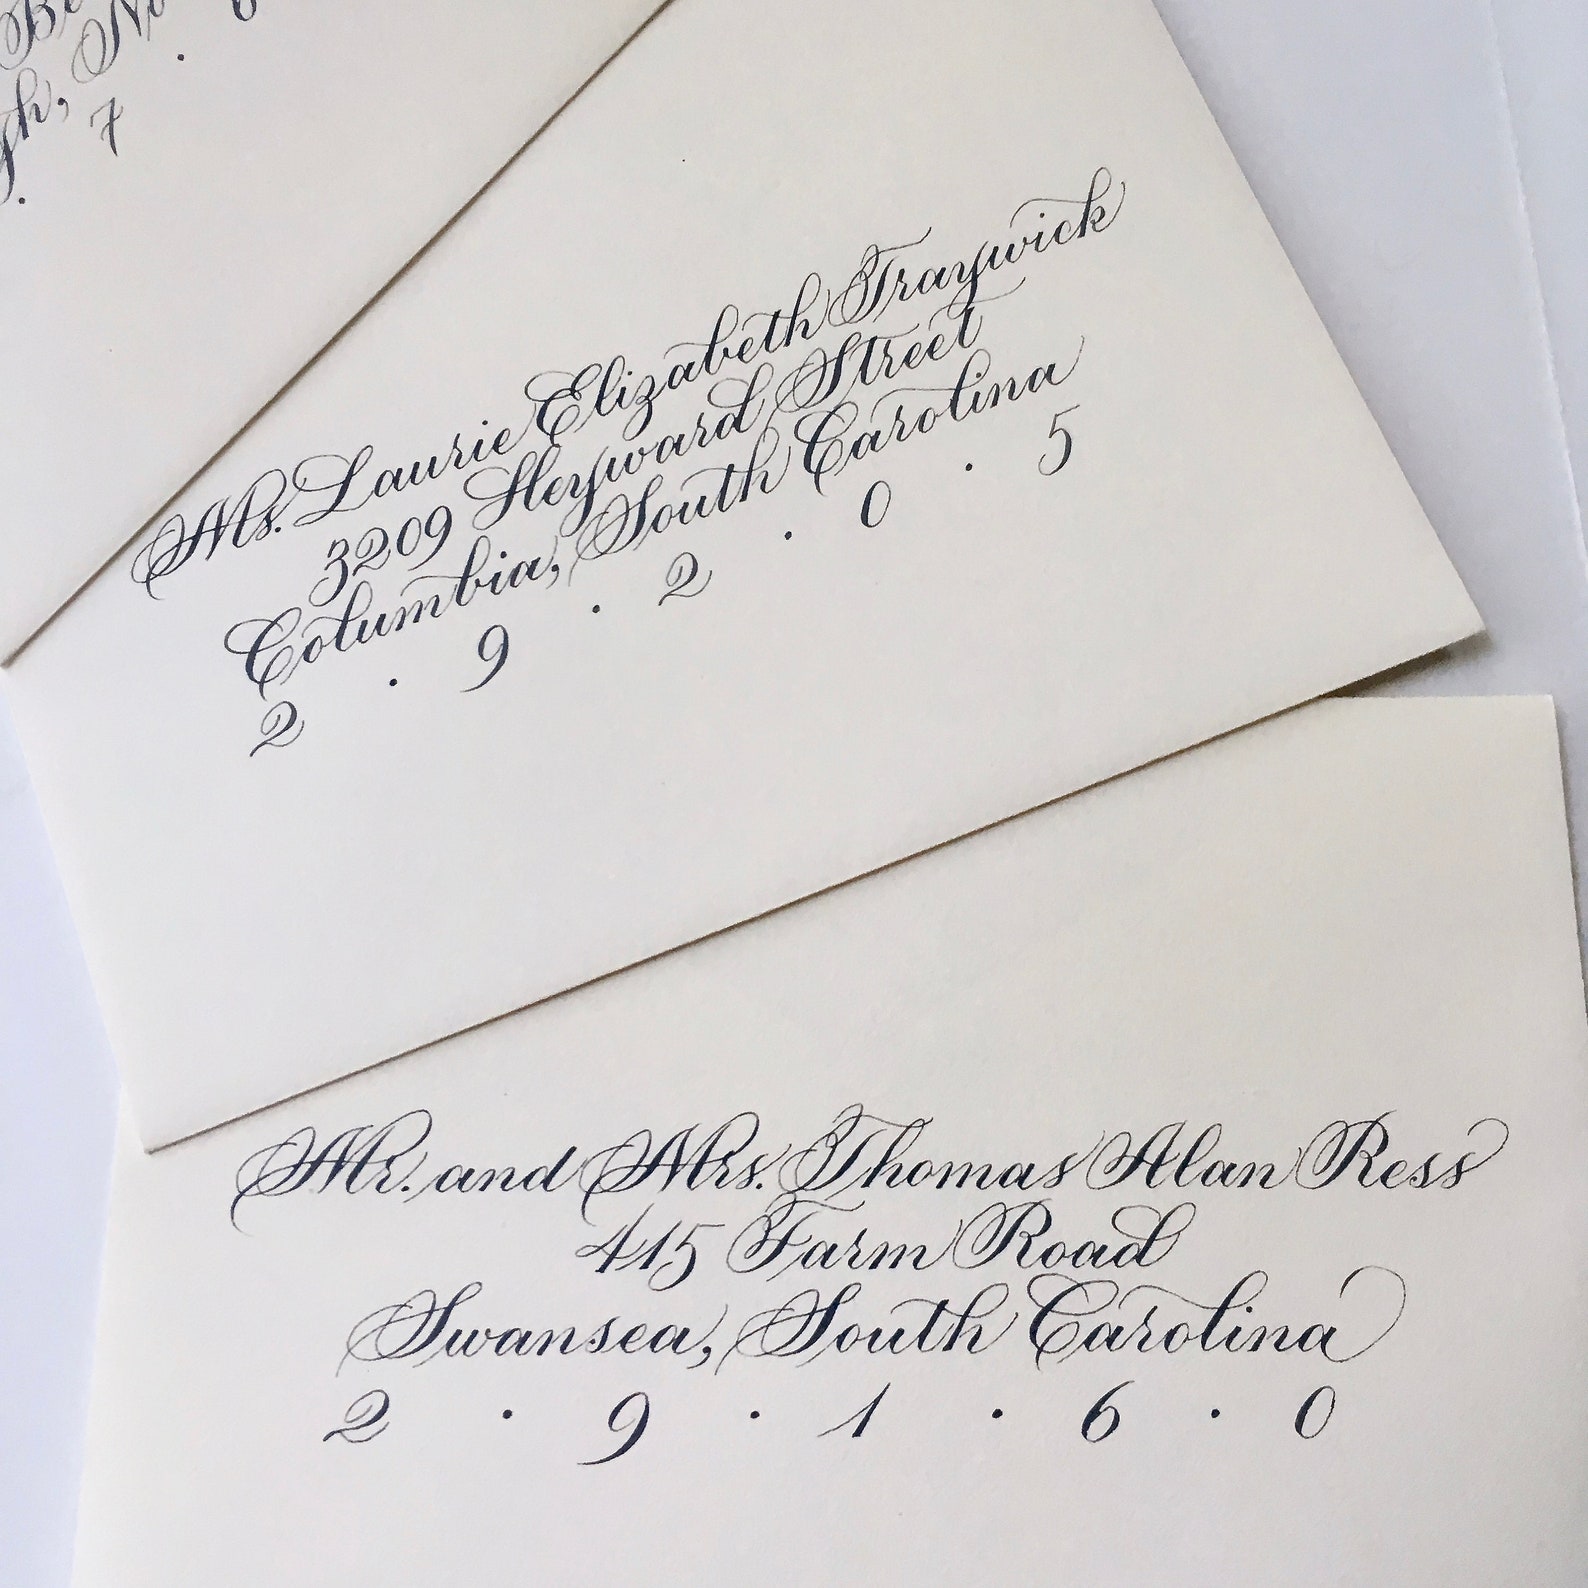 Be
gh, No
. 7 . 6
Ms. Laurie Elizabeth Traywick
3209 Heyward Street
Columbia, South Carolina
2 . 9 . 2 . 0 . 5
Mr. and Mrs. Thomas Alan Ress
415 Farm Road
Swansea, South Carolina
2 . 9 . 1 . 6 . 0